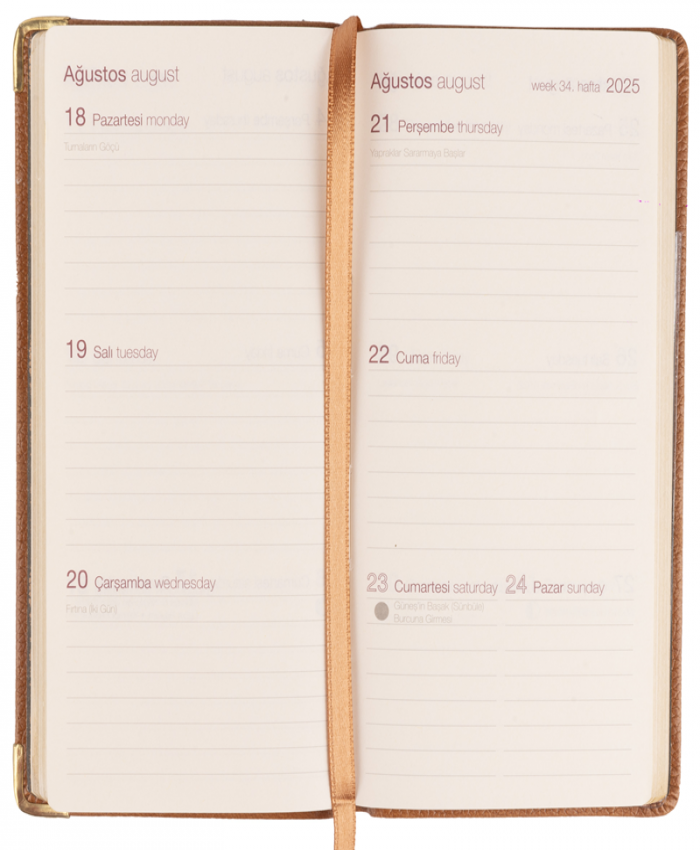 Ağustos august
18 Pazartesi monday
Turnaların Göçü
19 Salı tuesday
20 Çarşamba wednesday
Fırtına (İki Gün)
Ağustos august week 34. hafta 2025
21 Perşembe thursday
Yapraklar Sararmaya Başlar
22 Cuma friday
23 Cumartesi saturday 24 Pazar sunday
Güneş'in Başak (Sünbüle)
Burcuna Girmesi